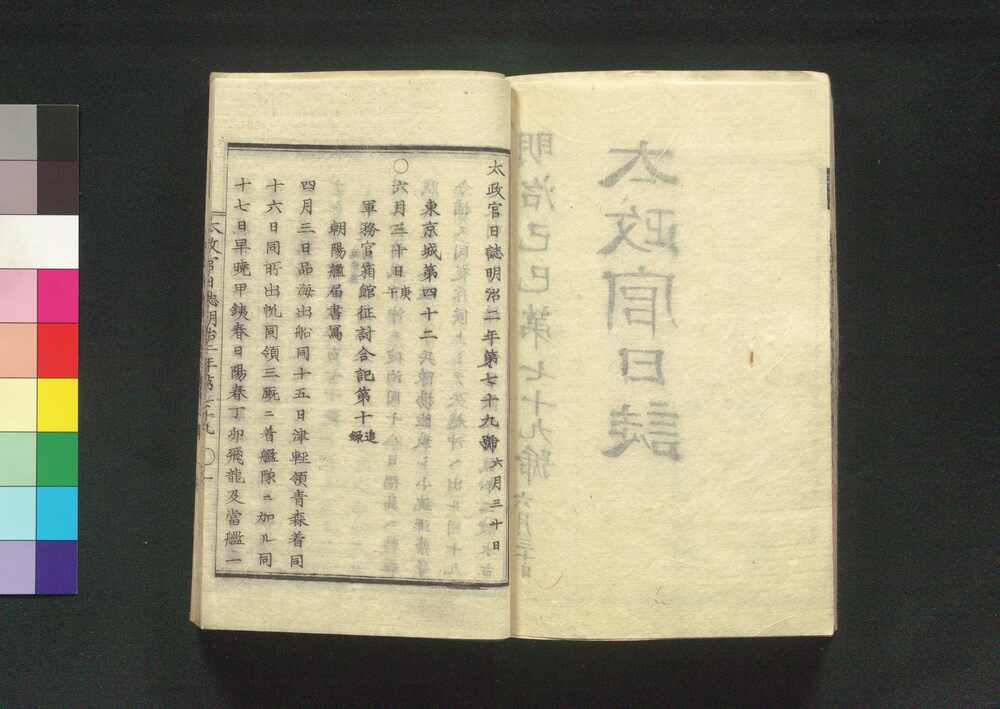 太政官日誌
明治己巳第七十九號 六月三十日
太政官日誌明治二年第七十九號 六月三十日
東京城第四十二
○六月三十日 庚午
軍務官箱館征討合記第十 追錄
朝陽艦届書寫
四月三日品海出船同十五日津輕領青森着同
十六日同所出帆同領三厩ニ着艦隊ニ加ル同
十七日早曉甲鉄春日陽春丁卯飛龍及當艦二
太政官日誌明治二年第七十九 ○ 一